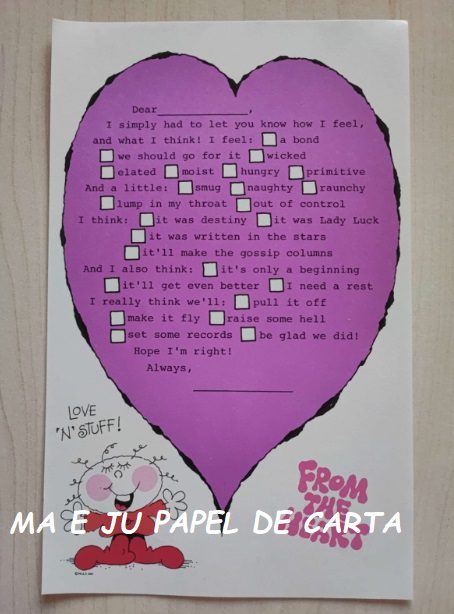 Dear______________,
I simply had to let you know how I feel,
and what I think! I feel: ☐a bond
☐we should go for it ☐wicked
☐elated ☐moist ☐hungry ☐primitive
And a little: ☐smug ☐naughty ☐raunchy
☐lump in my throat ☐out of control
I think: ☐it was destiny ☐it was Lady Luck
☐it was written in the stars
☐it'll make the gossip columns
And I also think: ☐it's only a beginning
☐it'll get even better ☐I need a rest
I really think we'll: ☐pull it off
☐make it fly ☐raise some hell
☐set some records ☐be glad we did!
Hope I'm right!
Always,
_______________
LOVE
'N' STUFF!
FROM
THE
HEART
MA E JU PAPEL DE CARTA